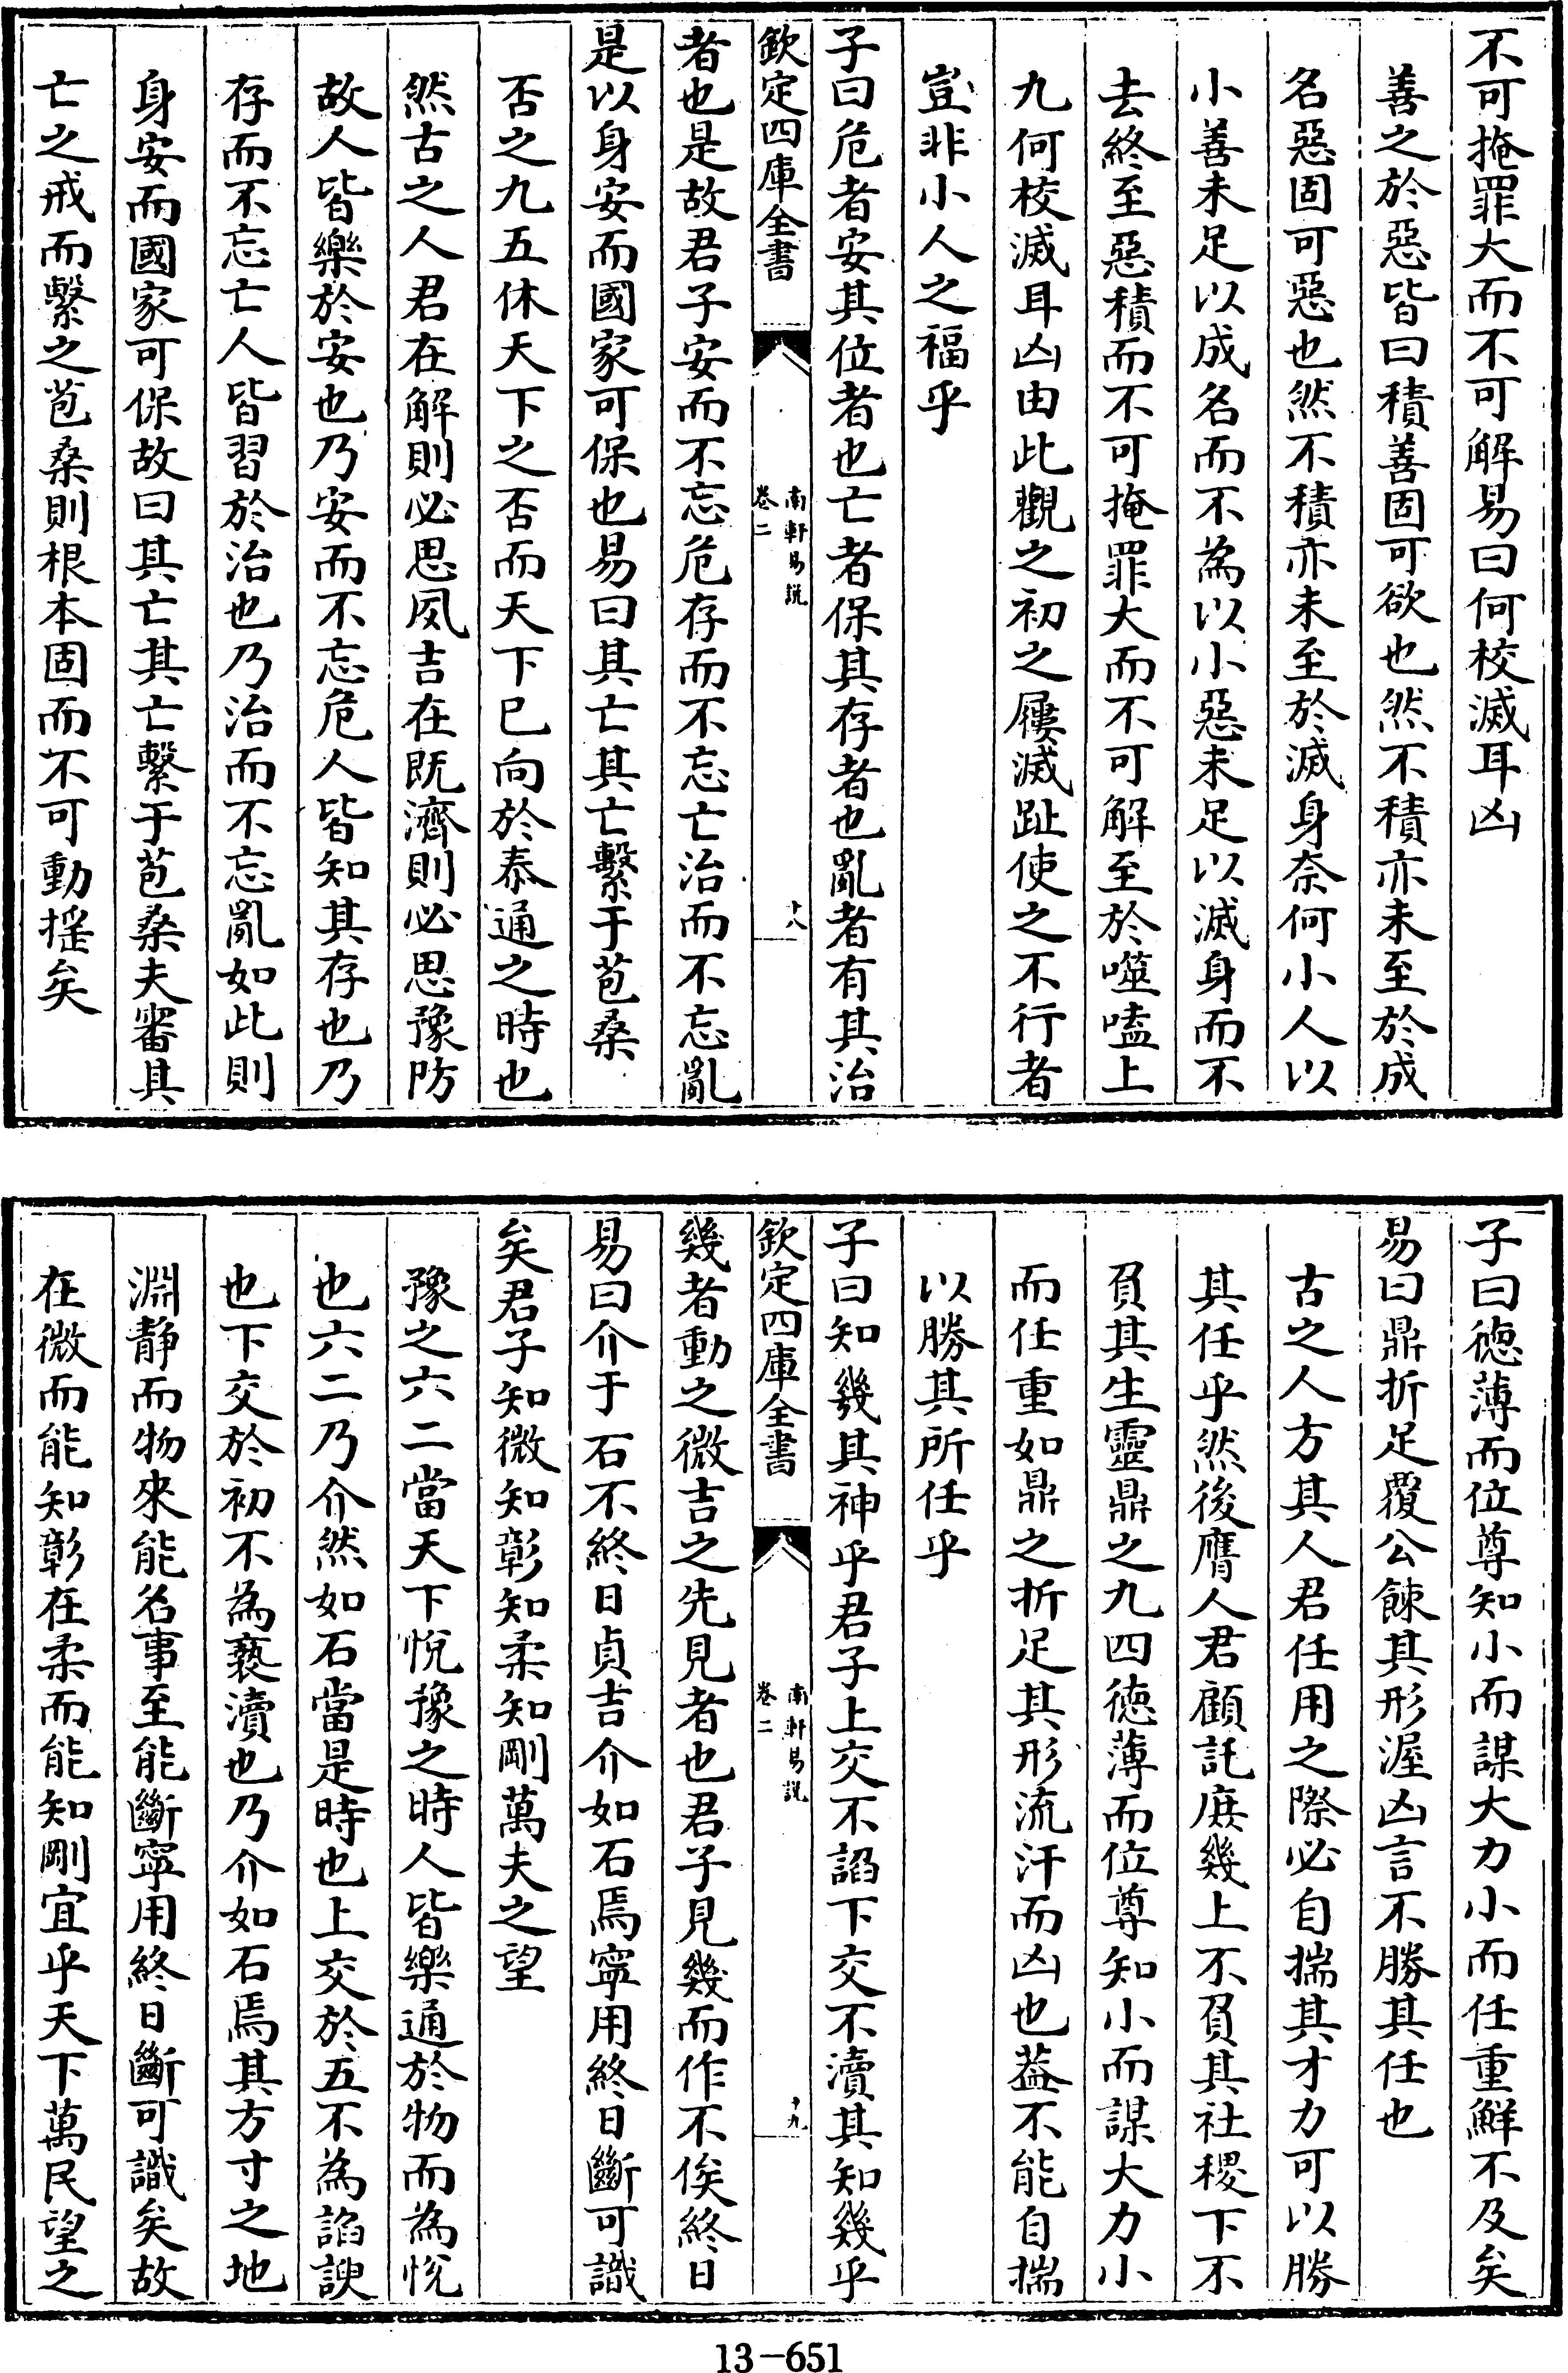 不可掩罪大而不可解易曰何校滅耳凶
善之於惡皆曰積善固可欲也然不積亦未至於成
名惡固可惡也然不積亦未至於滅身奈何小人以
小善未足以成名而不為以小惡未足以滅身而不
去終至惡積而不可掩罪大而不可解至於噬嗑上
九何校滅耳凶由此觀之初之屨滅趾使之不行者
豈非小人之福乎
子曰危者安其位者也亡者保其存者也亂者有其治
欽定四庫全書
南軒易說
卷二
十八
者也是故君子安而不忘危存而不忘亡治而不忘亂
是以身安而國家可保也易曰其亡其亡繫于苞桑
否之九五休天下之否而天下已向於泰通之時也
然古之人君在解則必思夙吉在既濟則必思豫防
故人皆樂於安也乃安而不忘危人皆知其存也乃
存而不忘亡人皆習於治也乃治而不忘亂如此則
身安而國家可保故曰其亡其亡繫于苞桑夫審其
亡之戒而繫之苞桑則根本固而不可動揺矣
子曰徳薄而位尊知小而謀大力小而任重鮮不及矣
易曰鼎折足覆公餗其形渥凶言不勝其任也
古之人方其人君任用之際必自揣其才力可以勝
其任乎然後膺人君顧託庶幾上不負其社稷下不
負其生靈鼎之九四徳薄而位尊知小而謀大力小
而任重如鼎之折足其形流汗而凶也葢不能自揣
以勝其所任乎
子曰知幾其神乎君子上交不諂下交不瀆其知幾乎
欽定四庫全書
南軒易說
卷二
十九
幾者動之微吉之先見者也君子見幾而作不俟終日
易曰介于石不終日貞吉介如石焉寧用終日斷可識
矣君子知微知彰知柔知剛萬夫之望
豫之六二當天下悅豫之時人皆樂通於物而為悅
也六二乃介然如石當是時也上交於五不為諂諛
也下交於初不為褻瀆也乃介如石焉其方寸之地
淵靜而物來能名事至能斷寧用終日斷可識矣故
在微而能知彰在柔而能知剛宜乎天下萬民望之
13-651